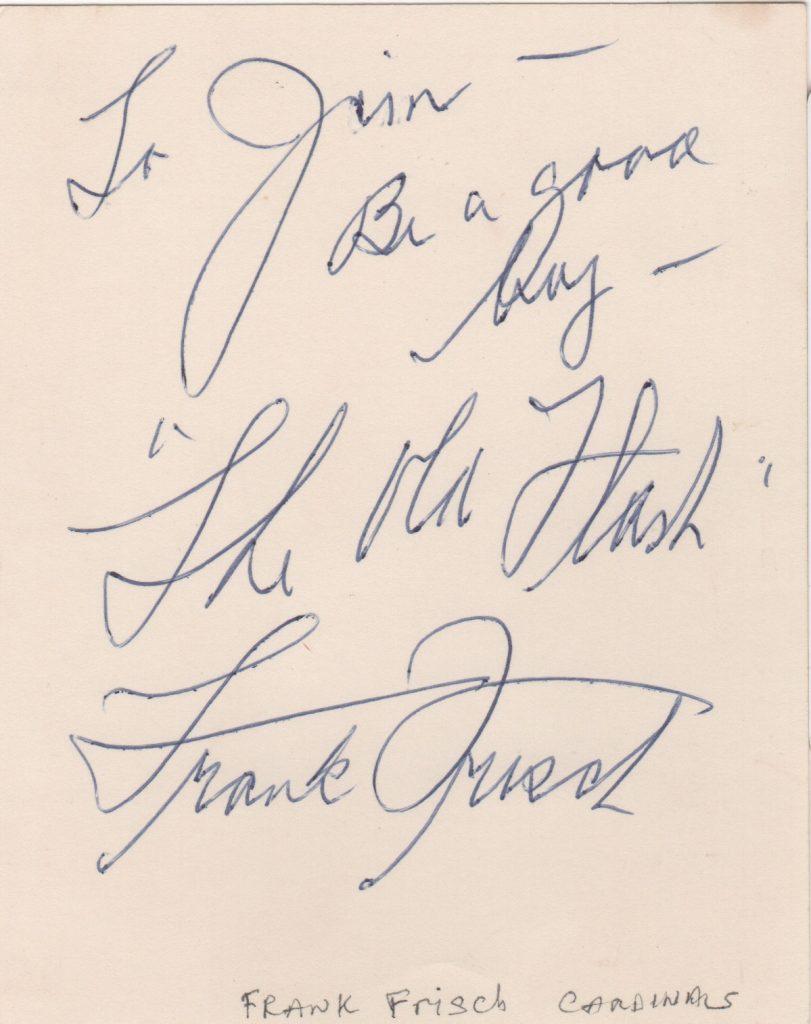 To Jim —
Be a good
boy —
"The Old Flash"
Frank Frisch
FRANK Frisch CARDINALS